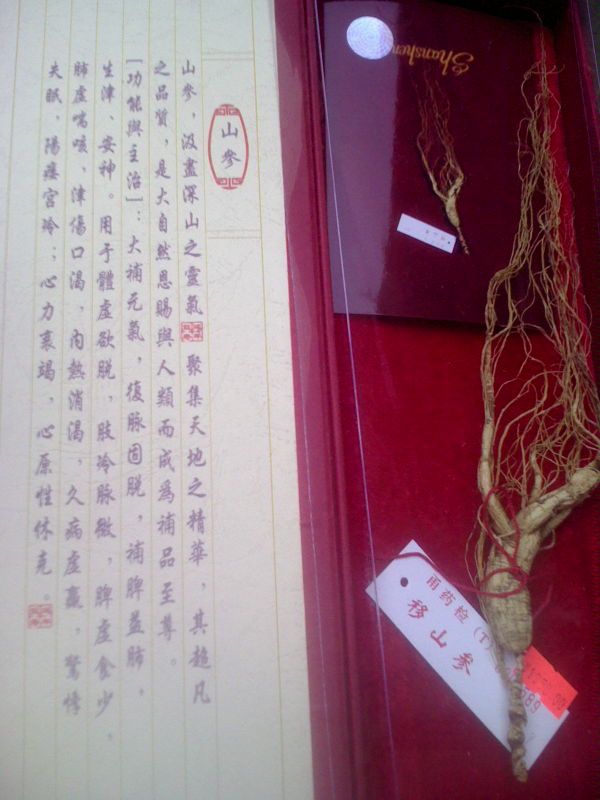 山參
山參，汲盡深山之靈氣 聚集天地之精華，其超凡
之品質，是大自然恩賜與人類而成爲補品至尊。
[功能與主治]：大補元氣，復脉固脱，補脾益肺，
生津、安神。用于體虛欲脱，肢冷脉微，脾虛食少，
肺虛喘咳，津傷口渴，内熱消渴，久病虛羸，驚悸
失眠，陽痿宫冷；心力衰竭，心原性休克。
Shanshen
甬药检(T)
移山参